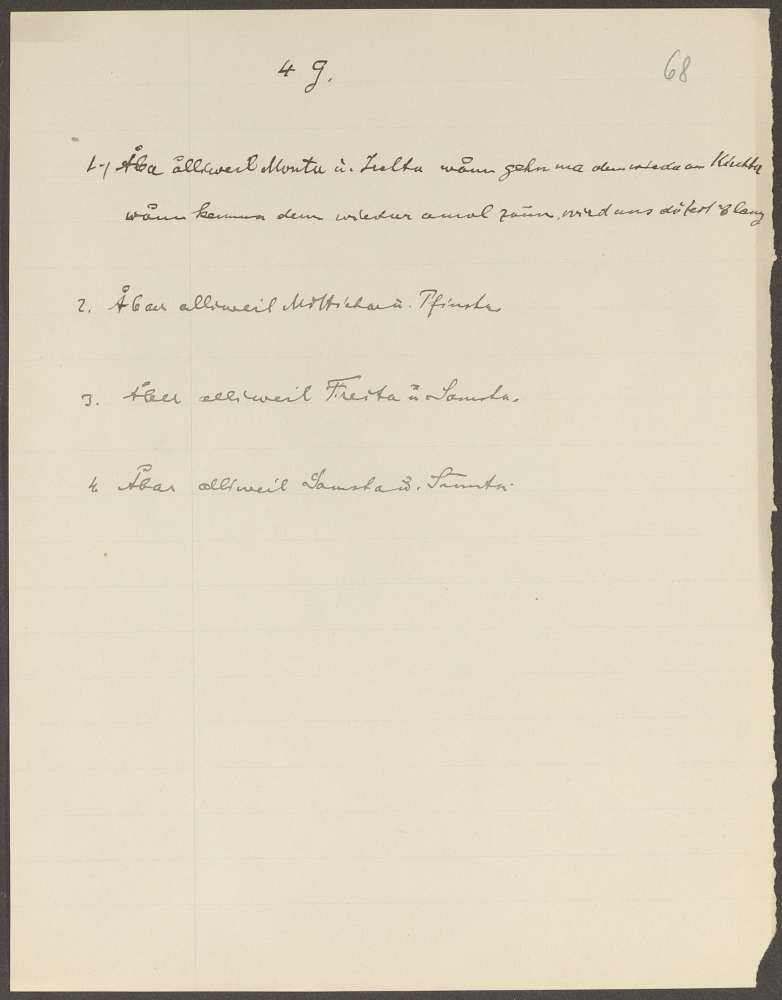 4 g.
68
1.) Åba ålliweil Monta u. wånn gehn ma denn wieda am Kirchta
wånn kemma denn wieder amol zåm, wird uns lang
2. Åbar alliweil u. Pfinsta
3. Åber alliweil Freita u Samsta.
4. Åbar alliweil Samsta u. Sunnta.